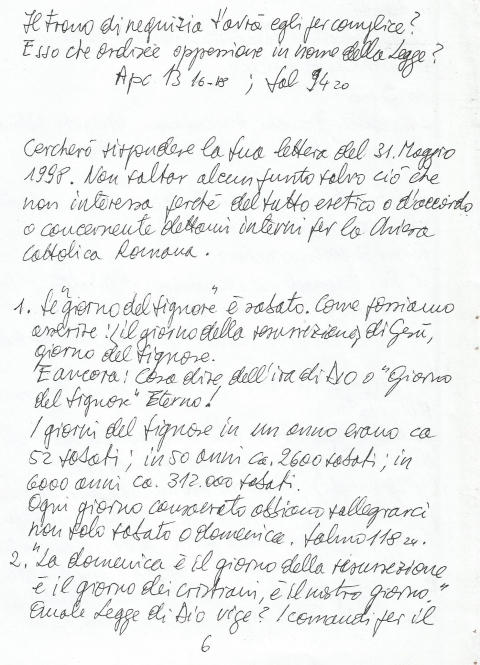 Il Trono di nequizia t'avrà egli per complice?
Esso che ordisce oppressione in nome della Legge?
Apc 13 16-18 ; Sal 94 20
Cercherò rispondere la Sua lettera del 31. Maggio
1998. Non saltar alcun punto salvo ciò che
non interessa perché del tutto eretico o d'accordo
o concernente dettami interni per la Chiesa
Cattolica Romana.
1. Il "giorno del Signore" è sabato. Come possiamo
asserire: il giorno della resurrezione, di Gesù,
giorno del Signore.
E ancora: Cosa dire, dell'ira di DIO o "Giorno
del Signore" Eterno!
I giorni del Signore in un anno erano ca
52 sabati; in 50 anni ca. 2600 sabati; in
6000 anni ca. 312.000 sabati.
Ogni giorno consacrato abbiamo rallegrarci
non solo sabato o domenica. Salmo 118 24.
2. "La domenica è il giorno della resurrezione
è il giorno dei cristiani, è il nostro giorno."
Quale Legge di Dio vige? I comandi per il
6